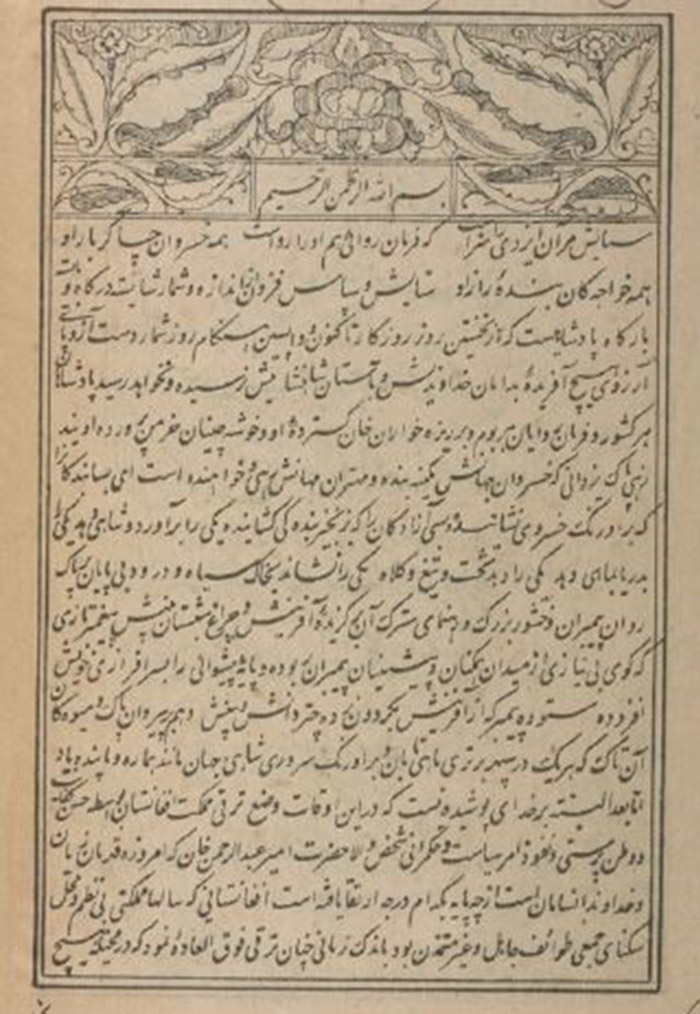 بسم الله الرحمن الرحیم
ستایش مر آن ایزدی را سزاست که فرمان روائی هم او را رواست همه خسروان چاکر بار او
همه خواجه‌کان بندهٔ زار او ستایش و سپاس فزون از اندازه و شمار شایسته درکاه و
بارکاه پادشاهیست که از نخستین روز روزکار تا کنون و واپسین هنکام روز شمار دست آز و
آرزوی هیچ آفریدهٔ بدامان خداوندیش و باستان شاهنشاهیش نرسیده و نخواهد رسید پادشاهان
هر کشور و فرمان روایان هر بوم و بر ریزه خواران خان کستردهٔ او و خوشه چینان خرمن پرورده اویند
زهی پاک یزدانی که خسروان جهانش کمینه بنده و مهتران مهانش رهی و خواهنده است ای بسا بندکانرا
که بر اورنک خسروی نشانیده و بسی آزادکان را که بزنجیر بندکی کشانیده یکی را برآورد و شاهی دهد یکی را
بدریا بماهی دهد یکی را دهد تخت و تیغ و کلاه یکی را نشاند بخاک سیاه و درود بی پایان بر پاک
روان پیمبران و خشور بزرک و رهنمای سترک آن برکزیدهٔ آفرینش و چراغ شبستان بینش پیغمبر تازی
که کوی بی نیازی از میدان همکنان و پیشینیان پیمبران ربوده و پایه پیشوائی را بسرافرازی خویش
افزوده ستوده پیمبر که از آفرینش بکردون زده چتر دانش و بینش و هم بر پیروان پاک و میوه‌های
آن تاک که هر یک در سپهر برتری ماهی تابان و بر اورنک سروری شاهی جهان مانند هماره و پاینده باد
اما بعد البته بر خدای پوشیده نیست که در این اوقات وضع ترقی مملکت افغانستان بواسطه حسن کفایت
و وطن پرستی و نفوذ امر سیاست و حکمرانی شخص والا حضرت امیر عبدالرحمن خان که امروزه قدردان زمان
و خداوند انسانان است از چه پایه بکدام درجه ارتقا یافته است افغانستانی که سالها مملکتی بی نظم و محل
سکنای جمعی طوائف جاهل و غیر متمدن بود باندک زمانی چنان ترقی فوق العاده نمود که در مخیله هیچ